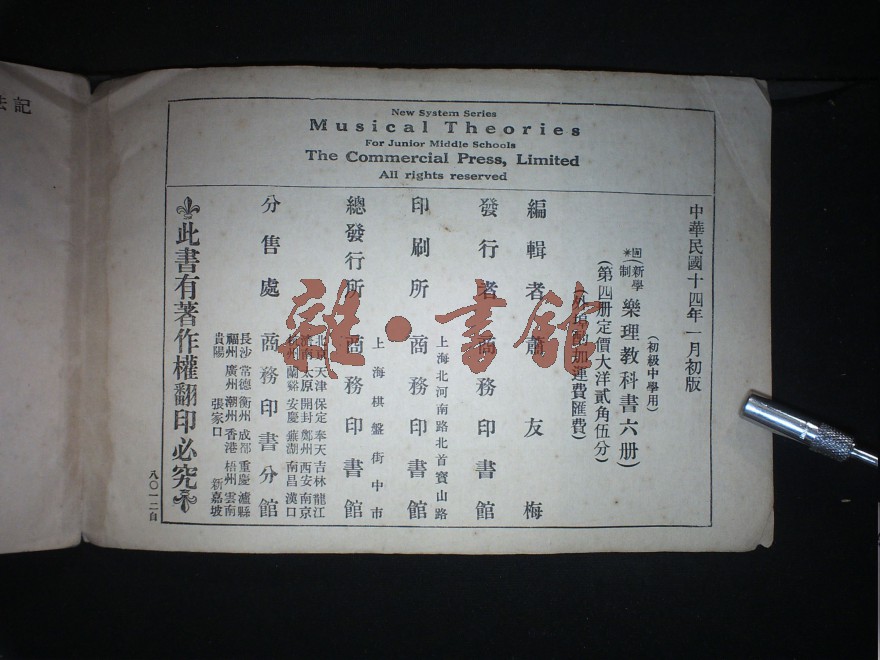 New System Series
Musical Theories
For Junior Middle Schools
The Commercial Press, Limited
All rights reserved
中華民國十四年一月初版
(初級中學用)
(新學制 樂理教科書六册)
(第四册定價大洋貳角伍分)
(外埠酌加運費匯費)
編輯者 蕭友梅
發行者 商務印書館
上海北河南路北首寳山路
印刷所 商務印書館
上海棋盤街中市
總發行所 商務印書館
北京天津保定奉天吉林龍江
濟南太原開封鄭州西安南京
杭州蘭谿安慶蕪湖南昌漢口
分售處 商務印書分館
長沙常德衡州成都重慶瀘縣
福州廣州潮州香港梧州雲南
貴陽 張家口 新嘉坡
此書有著作權翻印必究
八〇一二自
雜·書館
記